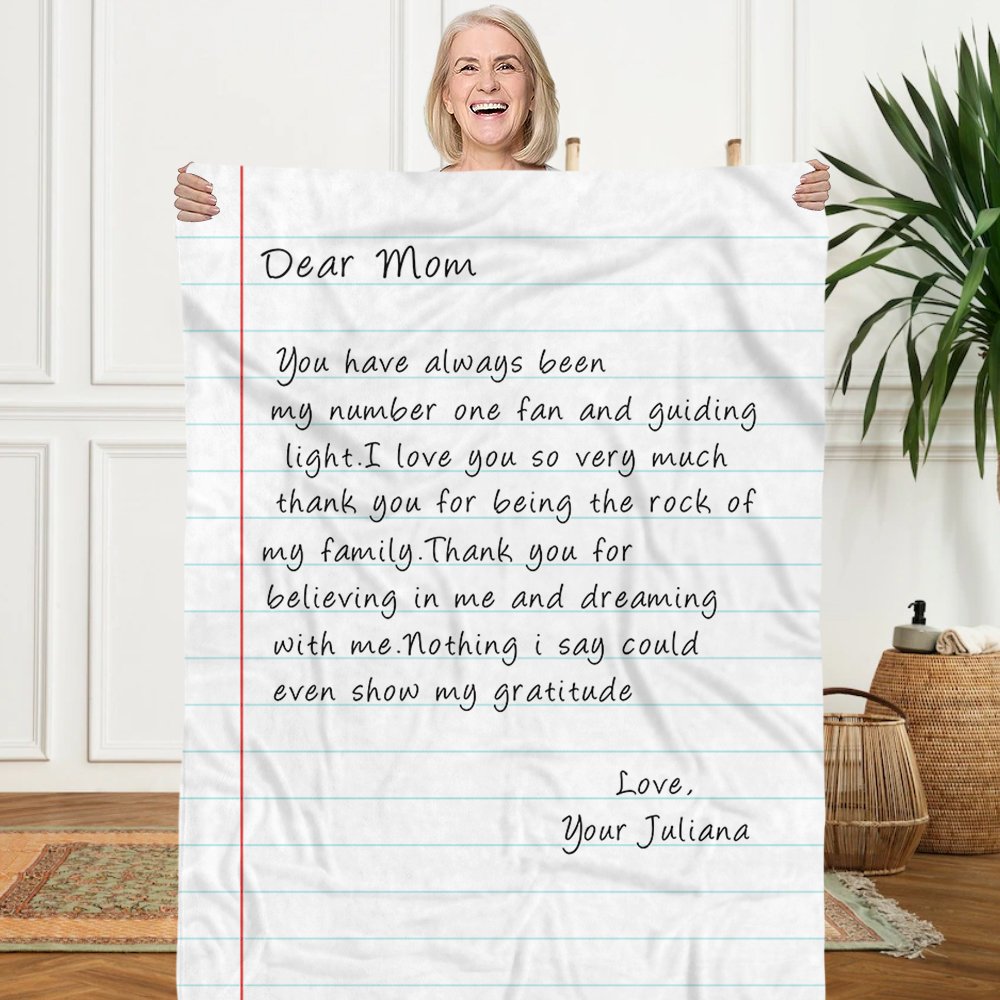 Dear Mom
You have always been
my number one fan and guiding
light.I love you so very much
thank you for being the rock of
my family.Thank you for
believing in me and dreaming
with me.Nothing i say could
even show my gratitude
Love,
Your Juliana